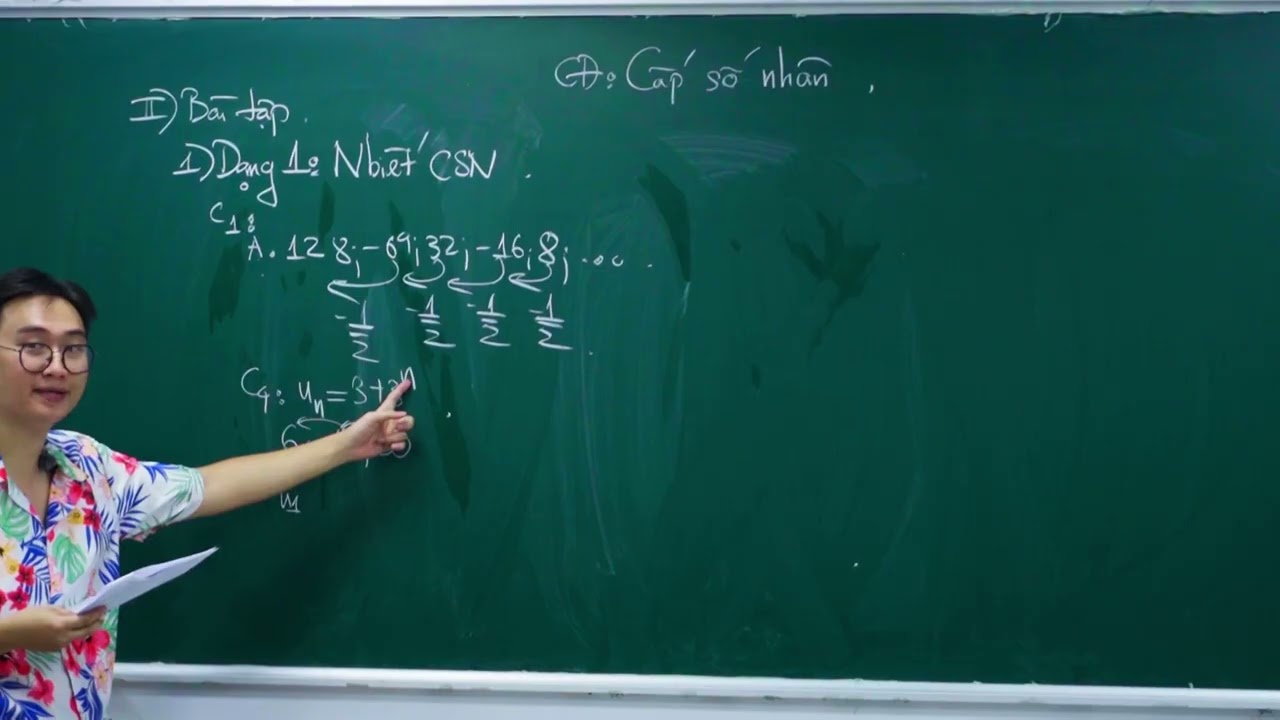 CĐ: Cấp số nhân.
II) Bài tập.
1) Dạng 1: Nbiết CSN.
C1:
A. 128; -64; 32; -16; 8; ...
-1/2 -1/2 -1/2 -1/2
C4: un = 3+3n
6
u1